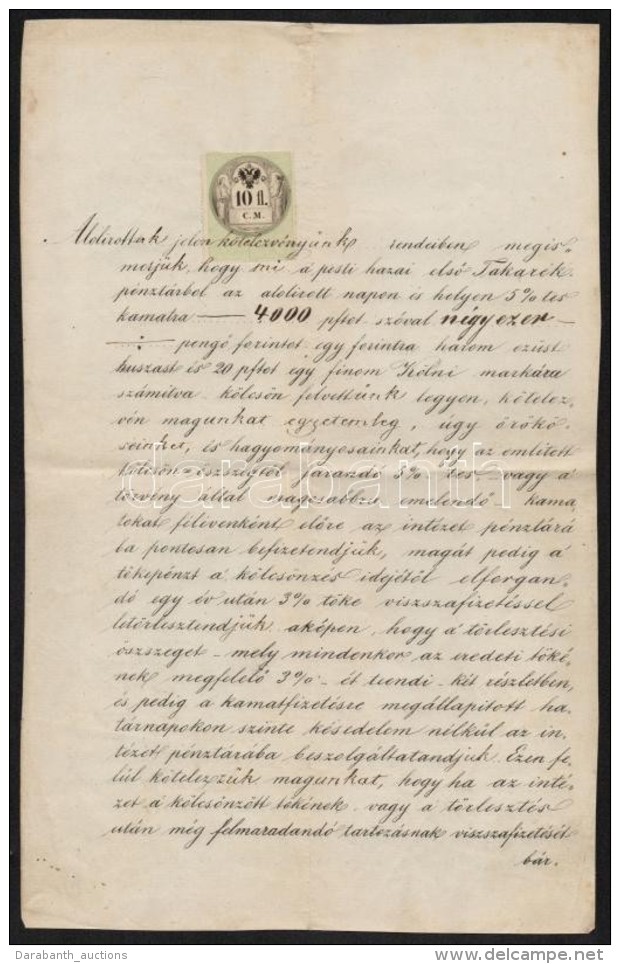 10 fl.
C. M.
Alolirottak jelen kötelezvényünk rendeiben megis-
merjük, hogy mi á pesti hazai első Takarék
pénztárból az alolirott napon és helyen 5% tes
kamatra — 4000 pftot szóval négyezer —
pengő forintot egy forintra három ezüst
huszast és 20 pftot egy finom Kölni markára
számitva kölcsön felvettünk légyen, kötelez-
vén magunkat egyetemleg, úgy örökö-
seinket, és hagyományosainkat, hogy az emlitett
kölcsön = öszszegtől járandó 5% tes vagy á
törvény által magosabbra emelendő kama
tokat félévenként előre az intézet pénztárá
ba pontosan befizetendjük, magát pedig á
tőkepénzt á kölcsönzés idejétől elforgan-
dó egy év után 3% tőke viszszafizetéssel
letörlesztendjük aképen, hogy á törlesztési
öszszeget - mely mindenkor az eredeti tőké-
nek megfelelő 3% - ét teendi - két részletben,
és pedig a kamatfizetésre megállapitott ha-
tárnapokon szinte késedelem nélkül az in-
tézet pénztárába beszolgáltatandjuk. Ezen fe-
lül kötelezzük magunkat, hogy ha az inté-
zet á kölcsönzött tőkének vagy á törlesztés
után még felmaradandó tartozásnak viszszafizetését
bár.
darabanth
Darabanth_auctions
delcampe.net